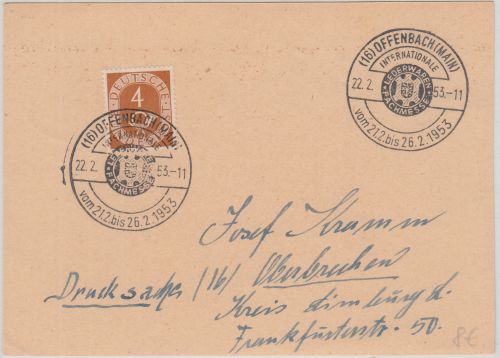 (16) OFFENBACH (MAIN)
INTERNATIONALE
LEDERWAREN-
FACHMESSE
22.2. 53.-11
vom 21.2. bis 26.2.1953
DEUTSCHE
4
(16) OFFENBACH (MAIN)
INTERNATIONALE
FACHMESSE
22.2. 53.-11
vom 21.2. bis 26.2.1953
Josef Kramm
Drucksache (16) Oberbrechen
Kreis Limburg L.
Frankfurterstr. 50.
8€